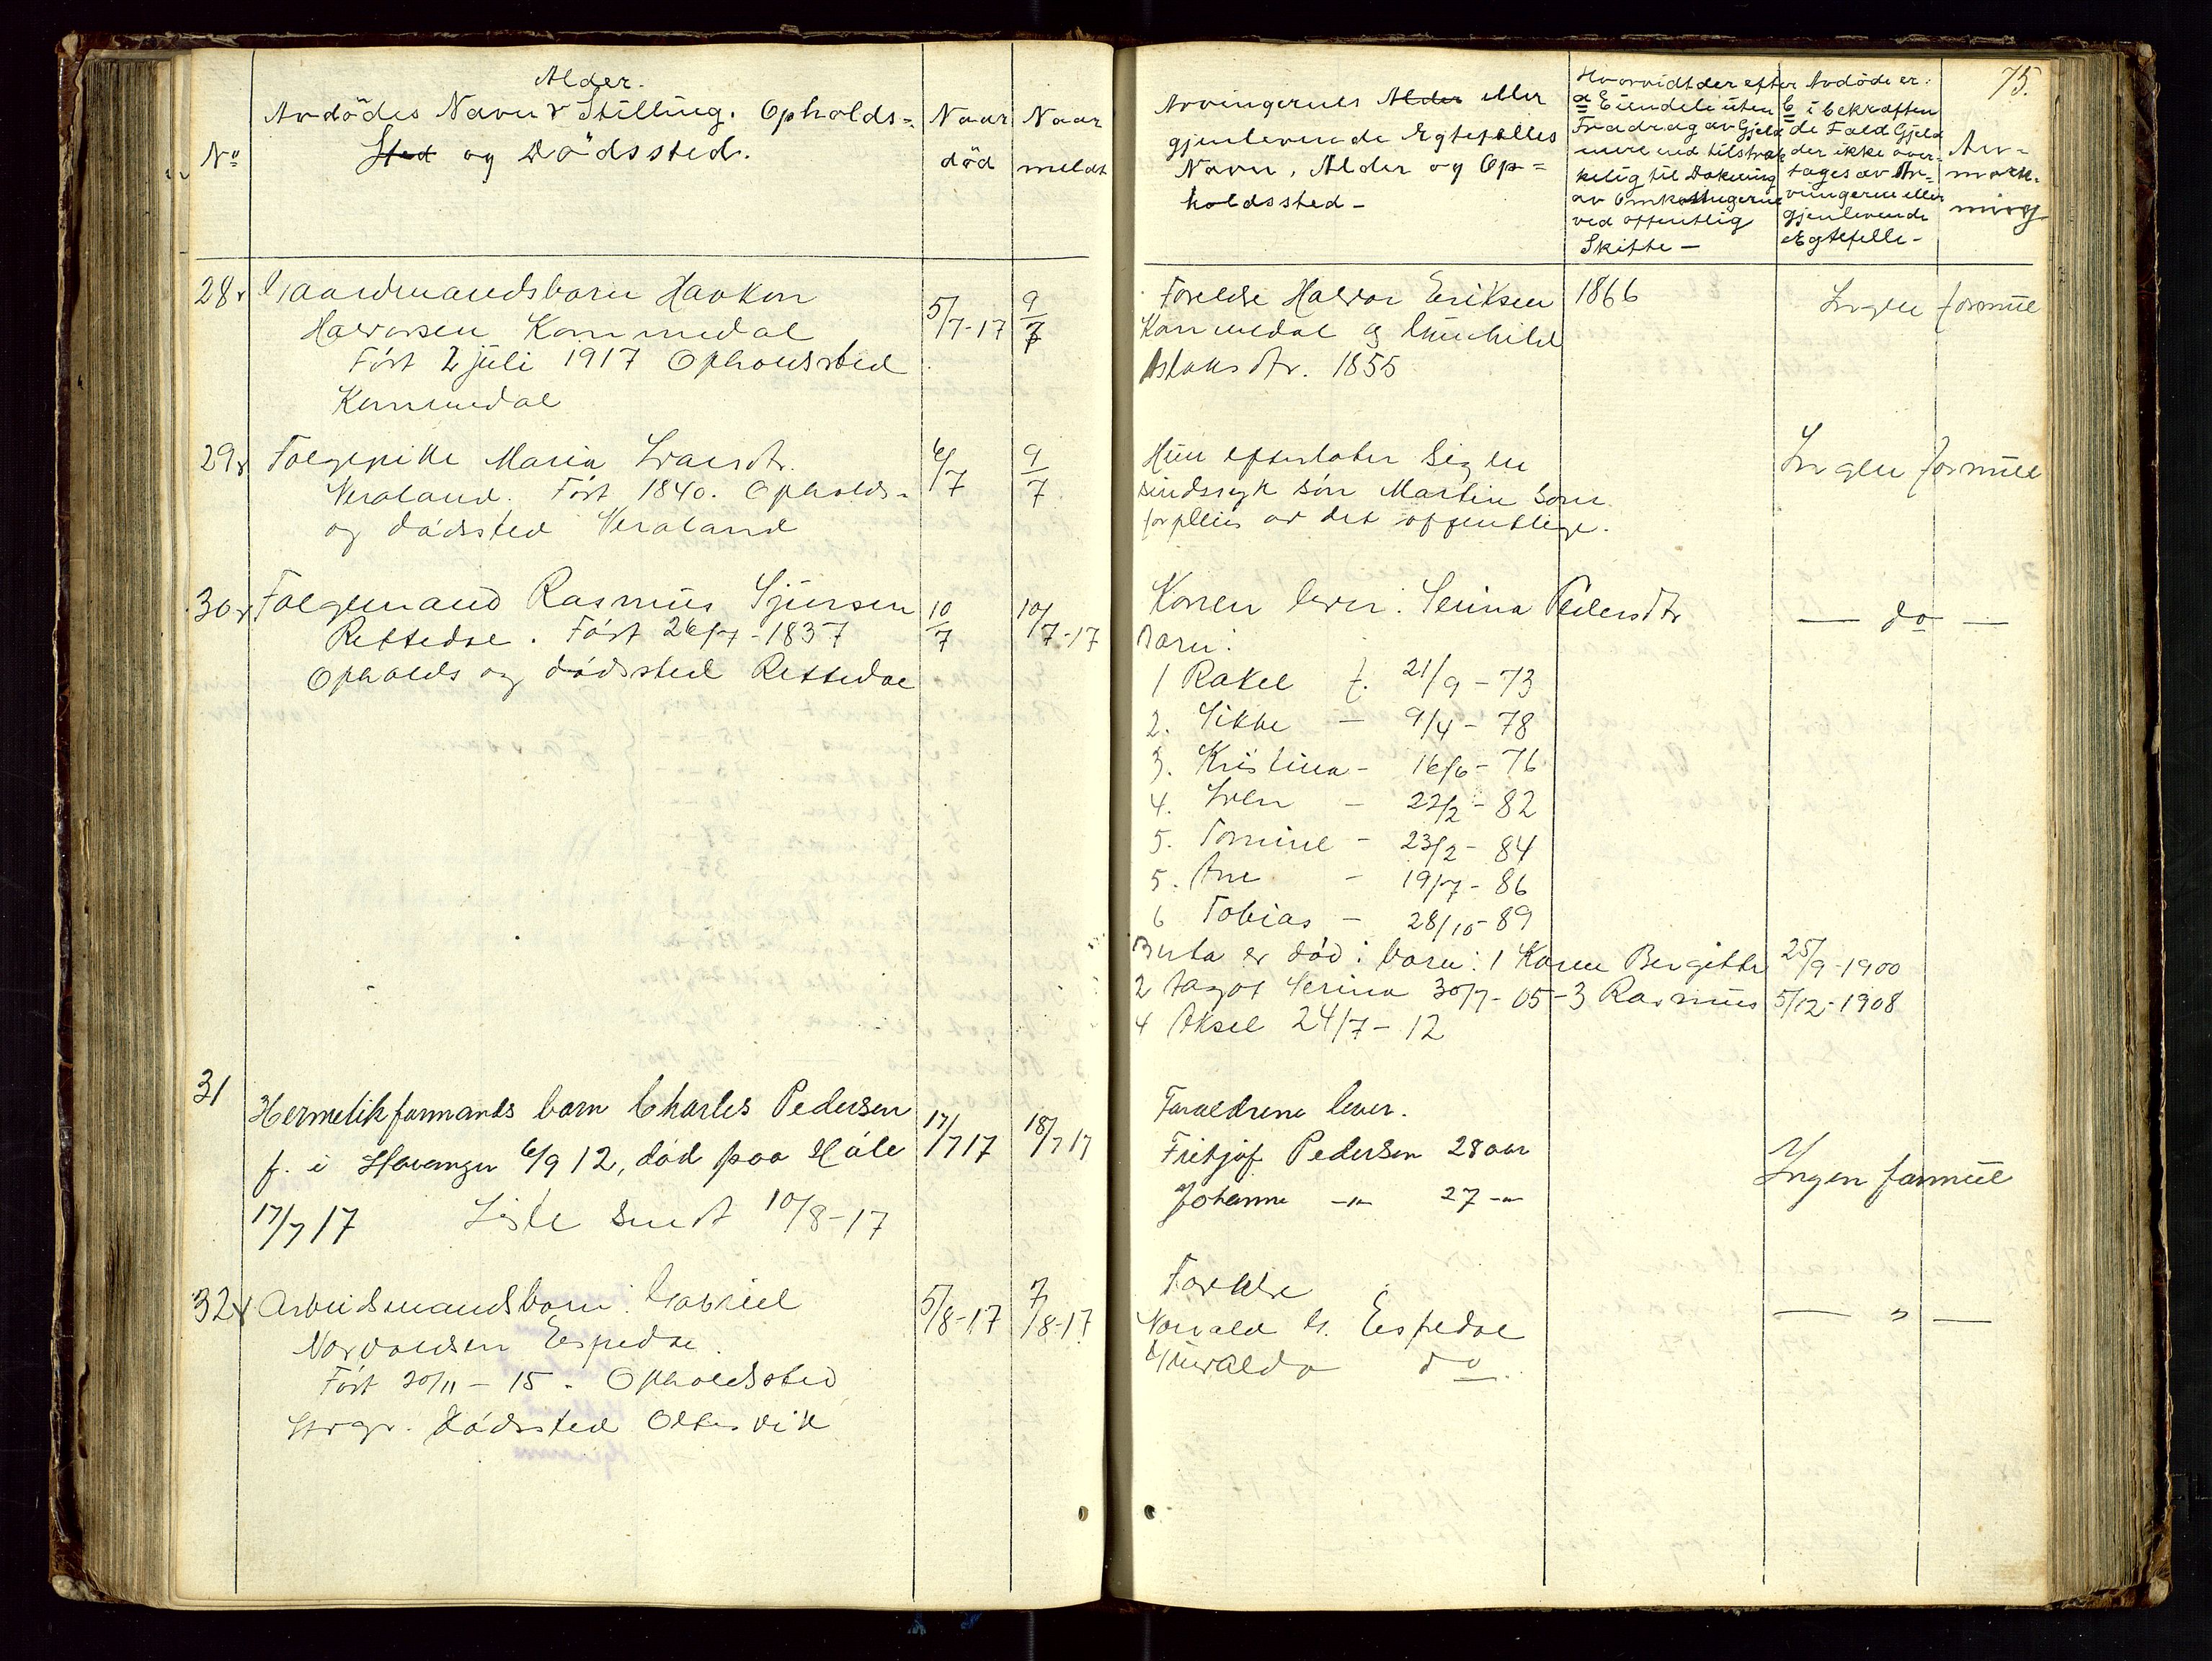 Alder.
Avdødes Navn & Stilling. Opholds-
Sted og Dødssted.
No
Naar
död
Naar
meldt
28
Gaardmandsbarn Haakon
Halvorsen Kommedal
Født 2 juli 1917 Opholdssted
Kommedal
5/7-17
9/7
29
Følgepike Maria Ivarsdtr.
Veraland. Født 1840. Opholds-
og dødssted Veraland
6/7
9/7
30
Følgemand Rasmus Sjursen
Rettedal. Født 26/7-1837
Opholds og dødssted Rettedal
10/7
10/7-17
31
Hermetikformands barn Charles Pedersen
f. i Stavanger 6/9 12, død paa Håle
17/7 17 Liste sendt 10/8-17
17/7 17
18/7 17
32
Arbeidsmandsbarn Gabriel
Norvaldsen Espedal
Født 20/11-15. Opholdssted
Strgr. Dødssted Oltesvik
5/8-17
7/8-17
75.
Arvingernes Alder eller
gjenlevende Egtefelles
Navn, Alder og Op-
holdssted-
Hvorvidt der efter Avdöde er:
a Eiendele uten
Fradrag av Gjeld
mere end tilstræk
kelig til Dækning
av Omkostningerne
ved offentlig
Skifte-
b i bekræften
de Fald Gjeld
der ikke over-
tages av Ar-
vingerne eller
gjenlevende
Egtefelle-
An-
mærk-
ning
Foreldre Halvor Eriksen 1866
Kommedal og Gunhild
Aslaksdtr. 1855
Ingen formue
Hun efterlater sig en
sindssyk søn Martin som
forpleies av det offentlige.
Ingen formue
Konen lever: Serina Pedersdtr
Barn:
— do —
1 Rakel f. 21/9-73
2. Sikke - 9/4-78
3. Kristina - 16/6-76
4. Sven - 22/2-82
5. Tomine - 23/2-84
5. Ane - 19/7-86
6 Tobias - 28/10-89
Berta er død: barn: 1 Karen Bergitte 25/9-1900
2 Aagot Serina 30/7-05-3 Rasmus 5/12-1908
4 Aksel 24/7-12
Foreldrene lever.
Fritjof Pedersen 28 aar
Johanne -"- 27 -"-
Ingen formue
Foreldre
Norvald G. Espedal
Gurealda do
— " —